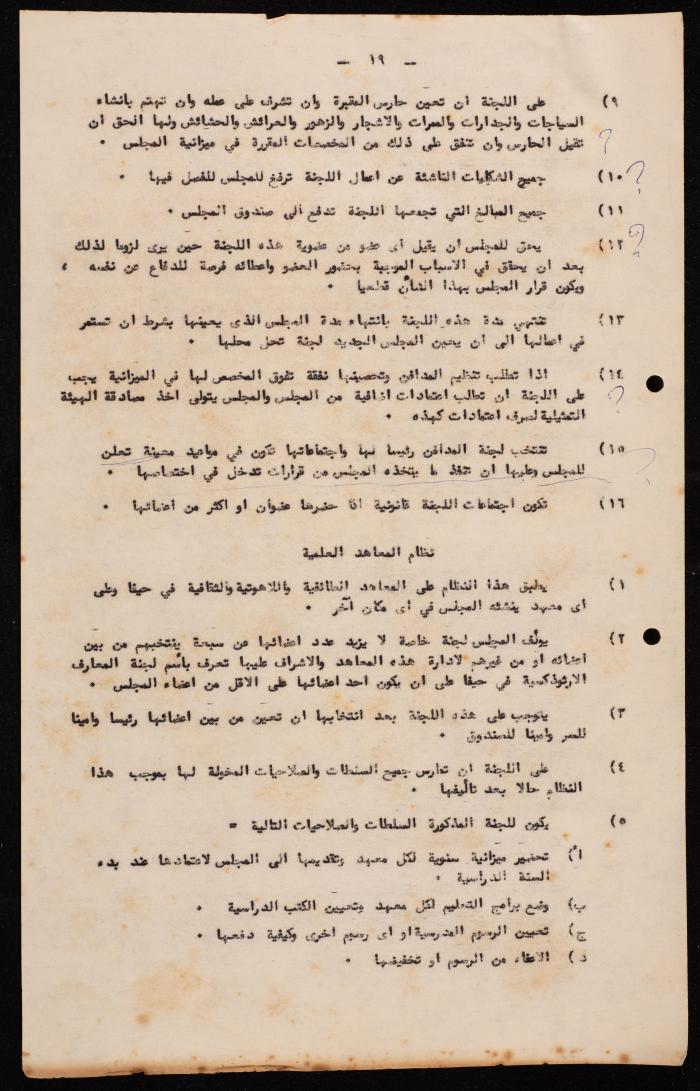 — ١٩ —
٩) على اللجنة ان تعين حارس المقبرة وان تشرف على عمله وان تهتم بانشاء
السياجات والجدارات والممرات والاشجار والزهور والعرائش والحشائش ولها الحق ان
تقيل الحارس وان تنفق على ذلك من المخصصات المقررة في ميزانية المجلس . ?
١٠) جميع الشكايات الناشئة عن اعمال اللجنة ترفع للمجلس للفصل فيها . ?
١١) جميع المبالغ التي تجمعها اللجنة تدفع الى صندوق المجلس .
١٢) يحق للمجلس ان يقيل أى عضو من عضوية هذه اللجنة حين يرى لزوما لذلك ?
بعد ان يحقق في الاسباب الموجبة بحضور العضو واعطائه فرصة للدفاع عن نفسه ،
ويكون قرار المجلس بهذا الشأن قطعيا .
١٣) تنتهي مدة هذه اللجنة بانتهاء مدة المجلس الذى يعينها بشرط ان تستمر
في اعمالها الى ان يعين المجلس الجديد لجنة تحل محلها .
١٤) اذا تطلب تنظيم المدافن وتحصينها نفقة تفوق المخصص لها في الميزانية يجب
على اللجنة ان تطلب اعتمادات اضافية من المجلس والمجلس يتولى اخذ مصادقة الهيئة ?
التمثيلية لصرف اعتمادات كهذه .
١٥) تنتخب لجنة المدافن رئيسا لها واجتماعاتها تكون في مواعيد معينة تعلن
للمجلس وعليها ان تنفذ ما يتخذه المجلس من قرارات تدخل في اختصاصها . ?
١٦) تكون اجتماعات اللجنة قانونية اذا حضرها عضوان او اكثر من اعضائها .
نظام المعاهد العلمية
١) يطبق هذا النظام على المعاهد الطائفية واللاهوتية والثقافية في حيفا وعلى
أى معهد ينشئه المجلس في أى مكان آخر .
٢) يولف المجلس لجنة خاصة لا يزيد عدد اعضائها عن سبعة ينتخبهم من بين
اعضائه او من غيرهم لادارة هذه المعاهد والاشراف عليها تعرف بأسم لجنة المعارف
الارثوذكسية في حيفا على ان يكون احد اعضائها على الاقل من اعضاء المجلس .
٣) يتوجب على هذه اللجنة بعد انتخابها ان تعين من بين اعضائها رئيسا وامينا
للسر وامينا للصندوق .
٤) على اللجنة ان تمارس جميع السلطات والصلاحيات المخولة لها بموجب هذا
النظام حالا بعد تأليفها .
٥) يكون للجنة المذكورة السلطات والصلاحيات التالية =
أ) تحضير ميزانية سنوية لكل معهد وتقديمها الى المجلس لاعتمادها عند بدء
السنة الدراسية .
ب) وضع برامج التعليم لكل معهد وتعيين الكتب الدراسية .
ج) تعيين الرسوم المدرسية او اى رسوم اخرى وكيفية دفعها .
د) الاعفاء من الرسوم او تخفيضها .